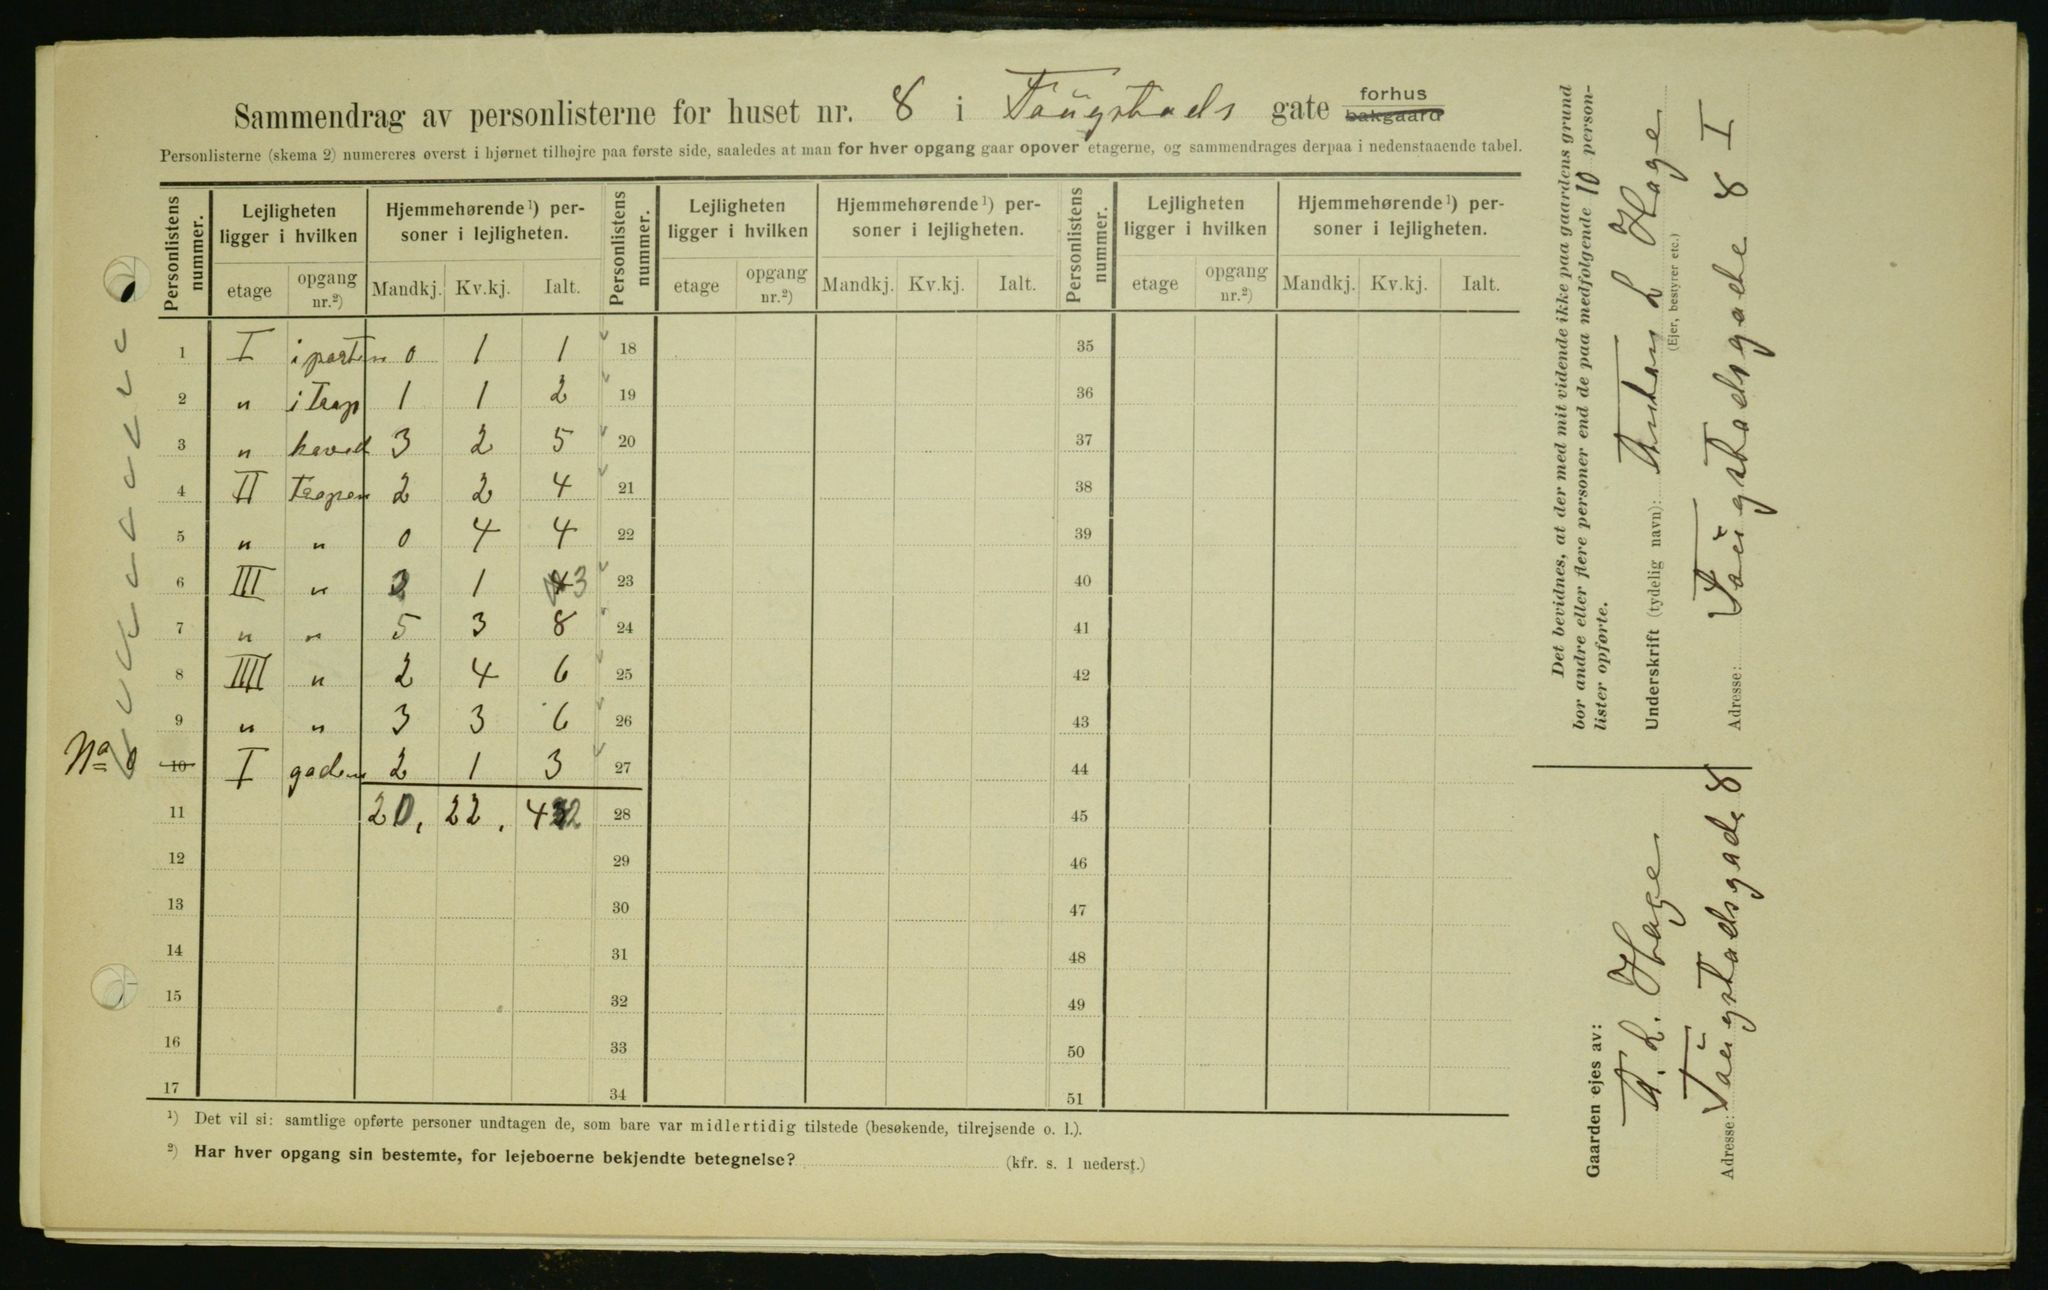 Sammendrag av personlisterne for huset nr. 8 i Taugstads gate forhus bakgaard
Personlisterne (skema 2) numereres øverst i hjørnet tilhøjre paa første side, saaledes at man for hver opgang gaar opover etagerne, og sammendrages derpaa i nedenstaaende tabel.
Personlistens nummer. Lejligheten ligger i hvilken Hjemmehørende ¹) personer i lejligheten. Personlistens nummer. Lejligheten ligger i hvilken Hjemmehørende ¹) personer i lejligheten. Personlistens nummer. Lejligheten ligger i hvilken Hjemmehørende ¹) personer i lejligheten.
etage opgang nr.²) Mandkj. Kv.kj. Ialt. etage opgang nr.²) Mandkj. Kv.kj. Ialt. etage opgang nr.²) Mandkj. Kv.kj. Ialt.
1 I i porten 0 1 1 18 35
2 " i Trap 1 1 2 19 36
3 " 3 2 5 20 37
4 II Trapen 2 2 4 21 38
5 " " 0 4 4 22 39
6 III " 2 1 3 23 40
7 " " 5 3 8 24 41
8 IIII " 2 4 6 25 42
9 " " 3 3 6 26 43
No 10 I gaden 2 1 3 27 44
11 20, 22, 42 28 45
12 29 46
13 30 47
14 31 48
15 32 49
16 33 50
17 34 51
¹) Det vil si: samtlige opførte personer undtagen de, som bare var midlertidig tilstede (besøkende, tilrejsende o. l.).
²) Har hver opgang sin bestemte, for lejeboerne bekjendte betegnelse? (kfr. s. 1 nederst.)
Det bevidnes, at der med mit vidende ikke paa gaardens grund
bor andre eller flere personer end de paa medfølgende 10 person-
lister opførte.
Underskrift (tydelig navn): Anton L Hage
(Ejer, bestyrer etc.)
Adresse: Taugstadsgade 8 I
Gaarden ejes av:
A. L. Hage
Adresse: Taugstadsgade 8